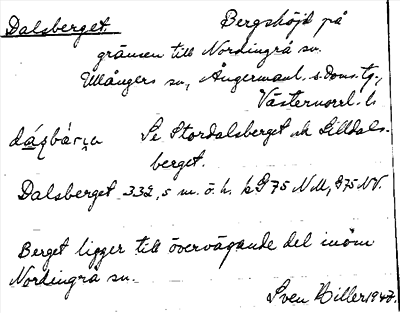 Dalsberget. Bergshöjd på
gränsen till Nordingrå sn.
Ullångers sn, Ångermanl. s. doms. tg.,
Västernorrl. l.
Se Stordalsberget och Lilldals-
berget.
Dalsberget 332,5 m. ö. h. k 975 NV.
Berget ligger till övervägande del inom
Nordingrå sn.
Sven Hiller 1947.